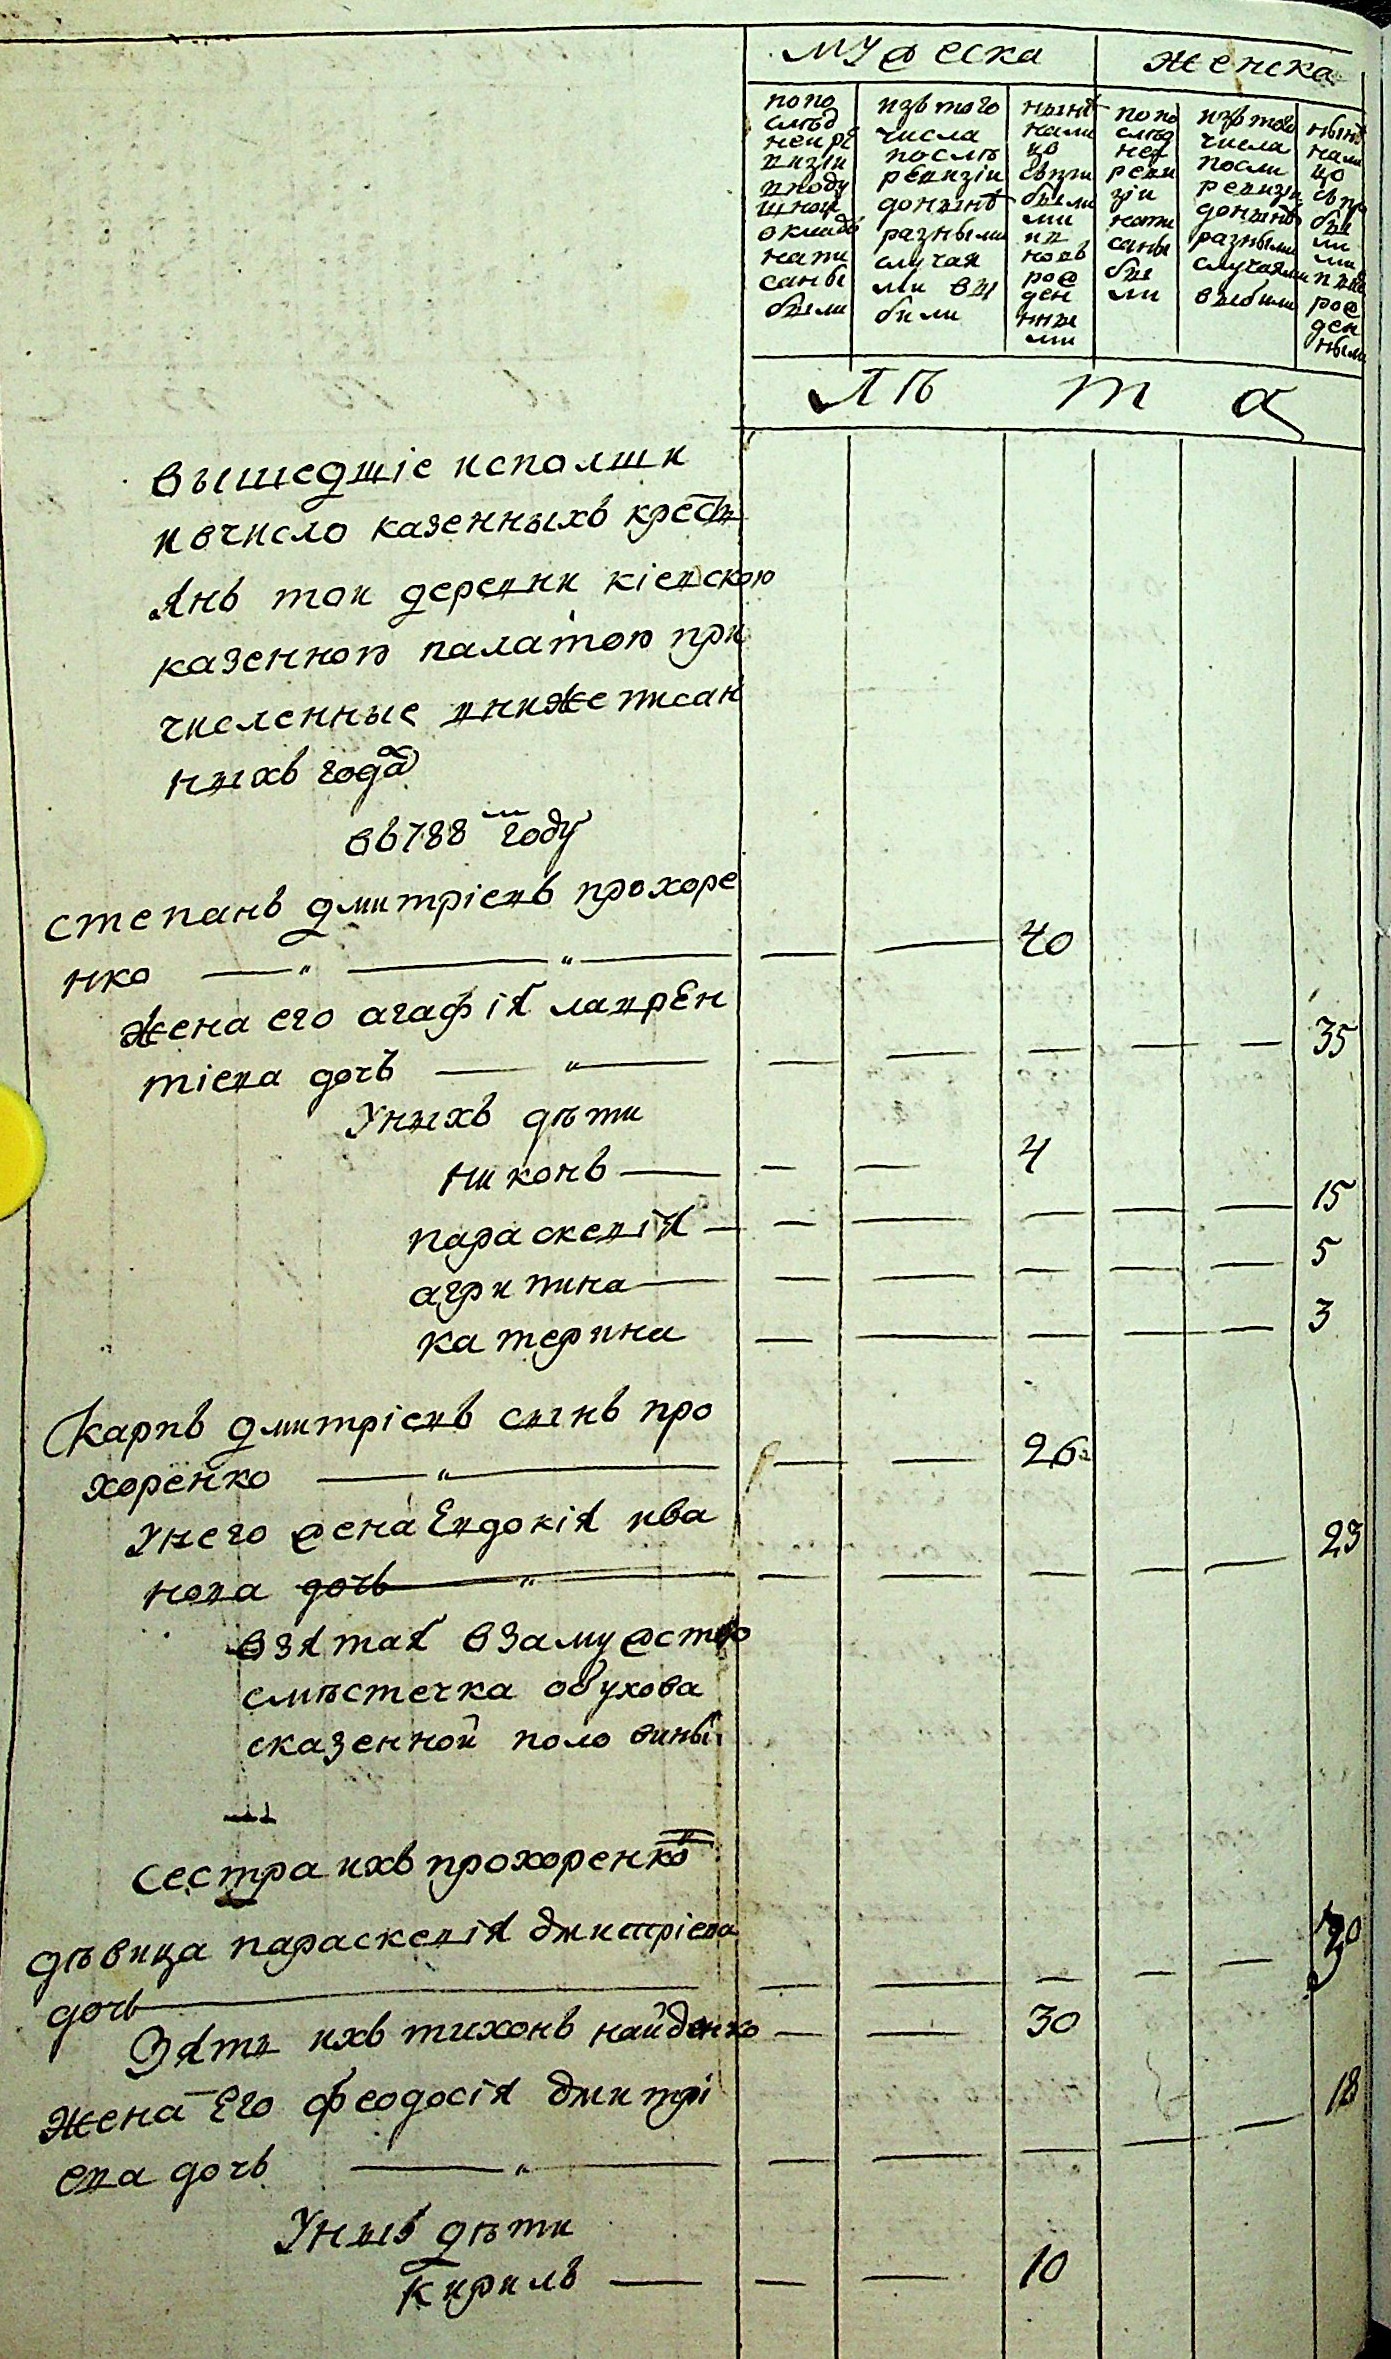 мужеска женска
попо
слѣд
ней рѣ
визіи
вподу
шной
окладѣ
напи
саны
были
изъ того
числа
послѣ
ревизіи
донынѣ
разными
случая
ми вы
были
нынѣ
нали
цо
съпри
были
ми
и
новъ
рож
ден
ны
ми
попо
слѣд
ней
реви
зіи
напи
саны
бы
ли
изъ того
числа
посли
ревизіи
донынѣ
разными
случаями
выбыли
нынѣ
нали
цо
съ при
бы
лы
ми
рож
ден
ными
лѣ т а
вышедшіе исполши
и вчисло казенныхъ крестъ
янъ той деревни кіевскою
казенною палатою при
численные внижеписан
ныхъ годахъ
въ788м году
степанъ дмитріевъ прохоре
нко — „ — „ — — — 40
жена его агафія лаврен
тіева дочъ — „ — — — — — — 35
Уныхъ дѣти
никонъ — — — 4
параскевія — — — — — — 15
агрипина — — — — — — 5
катерина — — — — — 3
Карпъ дмитріевъ сынъ про
хоренко — „ — — — 26
Унего жена Евдокія ива
нова дочъ — „ — — — — — — 23
взятая взамужство
смѣстечка обухова
сказенной половины
сестра ихъ прохоренко
дѣвица параскевія дмитріева
дочъ — — — — — — 30
Зять ихъ тихонъ найденко — — 30
жена Его феодосія дмитрі
ева дочъ — „ — — — — — — 18
Уныхъ дѣти
Кирилъ — — — 10